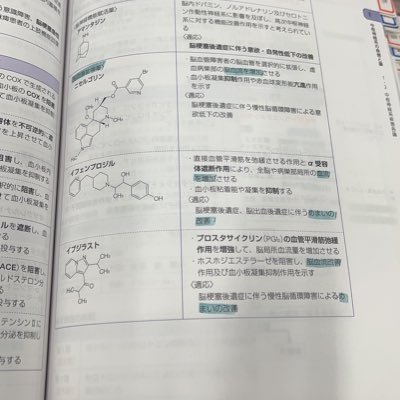 脳内ドパミン、ノルアドレナリン及びセロトニ
ン作動性神経系に影響を及ぼし、高次中枢神経
系に対する機能改善作用を示すと考えられてい
る
アマンタジン
〈適応〉
脳梗塞後遺症に伴う意欲・自発性低下の改善
ニセルゴリン
脳血管障害者の脳血管を選択的に拡張し、虚
血病巣部の脳血流を増加させる
血小板凝集抑制作用や赤血球変形能亢進作用
を示す
〈適応〉
脳梗塞後遺症に伴う慢性脳循環障害による意
欲低下の改善
イフェンプロジル
・直接血管平滑筋を弛緩させる作用と α 受容
体遮断作用により、全脳や病巣部局所の血流
を増加させる
・血小板粘着能や凝集を抑制する
〈適応〉
脳梗塞後遺症、脳出血後遺症に伴うめまいの
改善
イブジラスト
・プロスタサイクリン(PGI₂)の血管平滑筋弛緩
作用を増強して、脳局所血流量を増加させる
・ホスホジエステラーゼを阻害し、脳血流改善
作用及び血小板凝集抑制作用を示す
〈適応〉
脳梗塞後遺症に伴う慢性脳循環障害によるめ
まいの改善
の COX で生成される
血小板の COX を抑制
て血小板凝集を抑制
容体を不可逆的に遮
を上昇させて血小
阻害し、血小板内
択的に阻害し、血
制する
ルを遮断し、血
投与する
(ACE)を阻害し、
ルドステロン分
投与する
テンシンⅡに
分泌を抑制し
与する